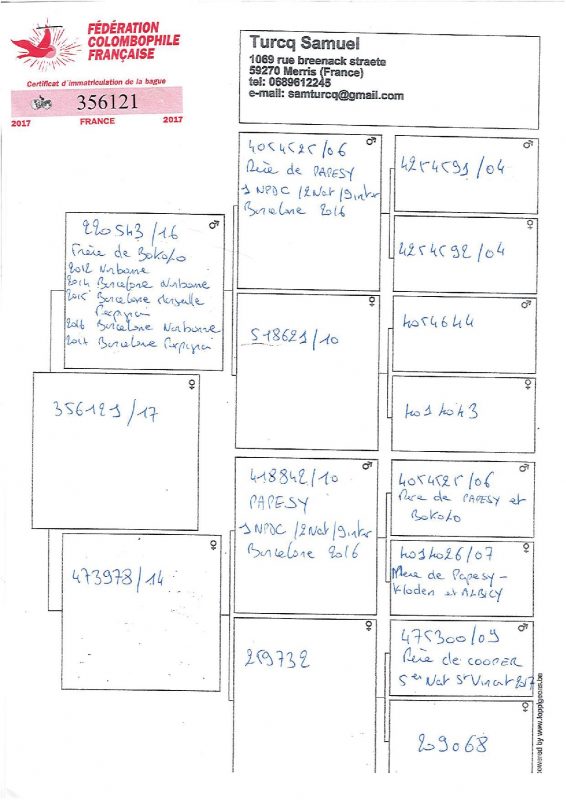 FÉDÉRATION
COLOMBOPHILE
FRANÇAISE
Certificat d'immatriculation de la bague
356121
2017 FRANCE 2017
Turcq Samuel
1069 rue breenack straete
59270 Merris (France)
tel: 0689612245
e-mail: samturcq@gmail.com
220543/16
Frère de BOKOLO
2012 Narbonne
2014 Barcelone Narbonne
2015 Barcelone Marseille
Perpignan
2016 Barcelone Narbonne
Barcelone Perpignan
356121/17
473978/14
4054525/06
Père de PAPESY
1 NPDC /2Nat/9inter
Barcelone 2016
518621/10
418842/10
PAPESY
1 NPDC /2Nat/9inter
Barcelone 2016
259732
4254591/04
4254592/04
4054644
4054525/06
Père de PAPESY et
BOKOLO
Mère de Papesy-
Kloden et ALBICY
475300/09
Père de COOPER
5er Nat St Vincent 2017
209068
powered by www.toppigeons.be